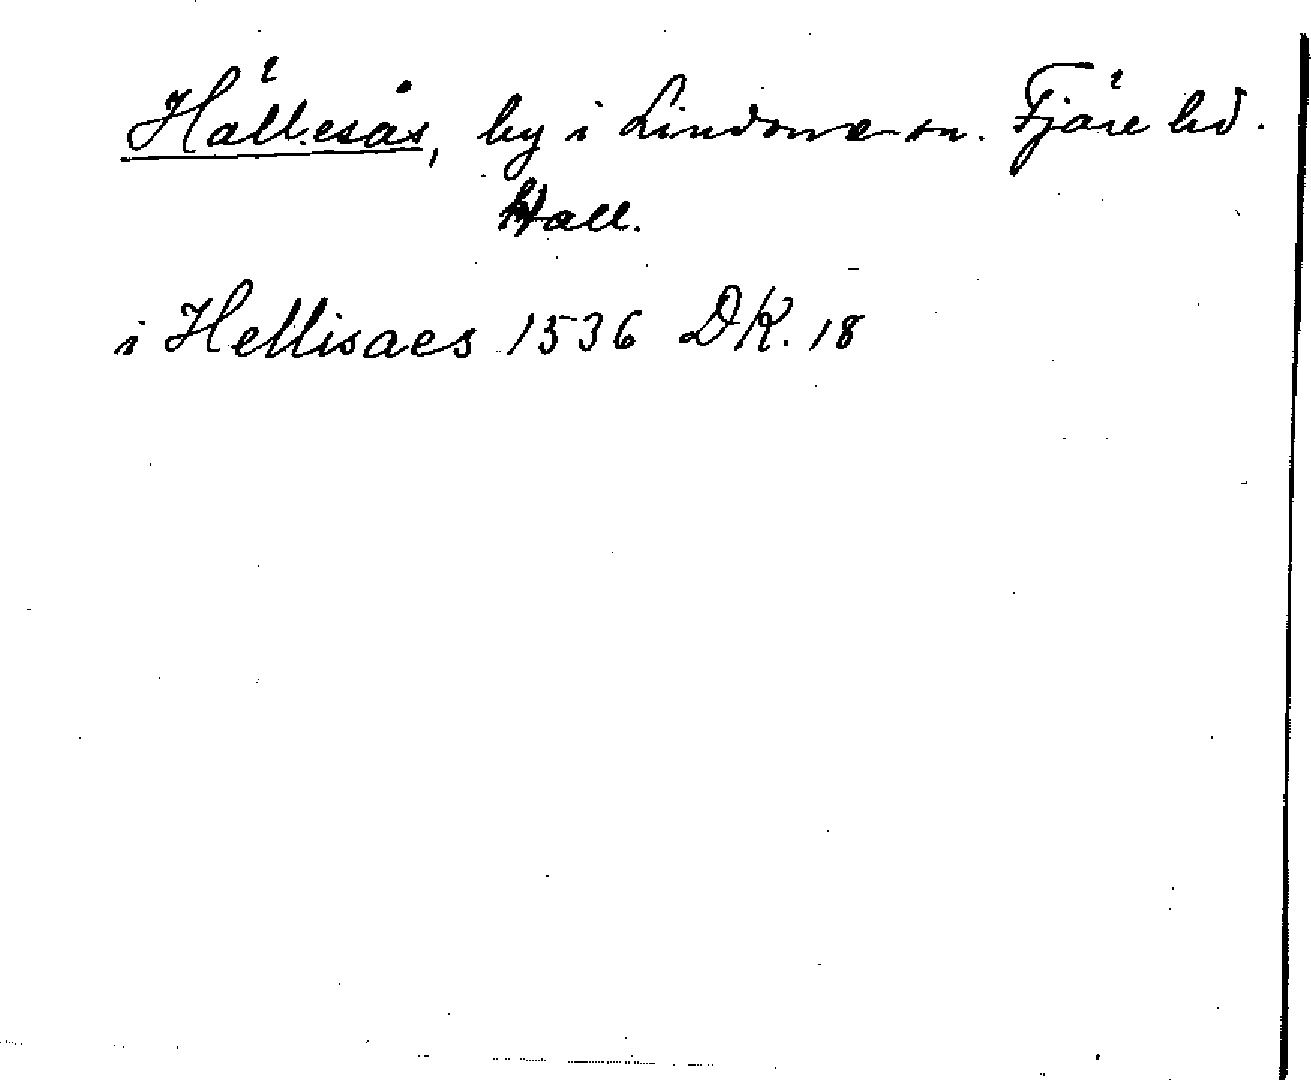 Hällesås, by i Lindome sn. Fjäre hd.
Hall.
i Hellisaes 1536 DK. 18